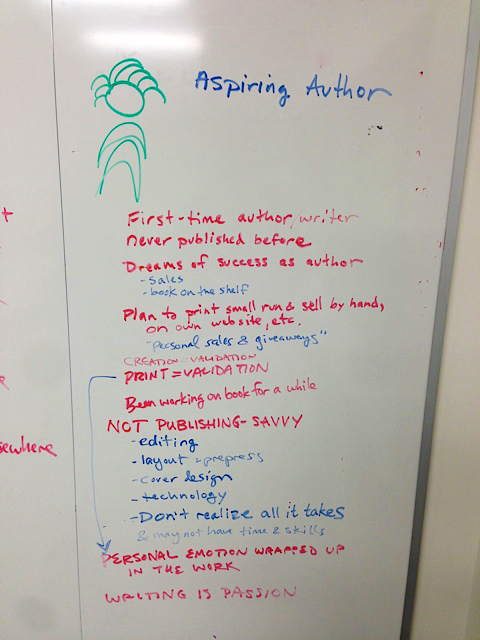 Aspiring Author
First-time author, writer
never published before
Dreams of success as author
- sales
- book on the shelf
Plan to print small run & sell by hand,
on own website, etc.
"personal sales & giveaways"
CREATION = VALIDATION
PRINT = VALIDATION
Been working on book for a while
NOT PUBLISHING-SAVVY
- editing
- layout & prepress
- cover design
- technology
- Don't realize all it takes
& may not have time & skills
PERSONAL EMOTION WRAPPED UP
IN THE WORK
WRITING IS PASSION